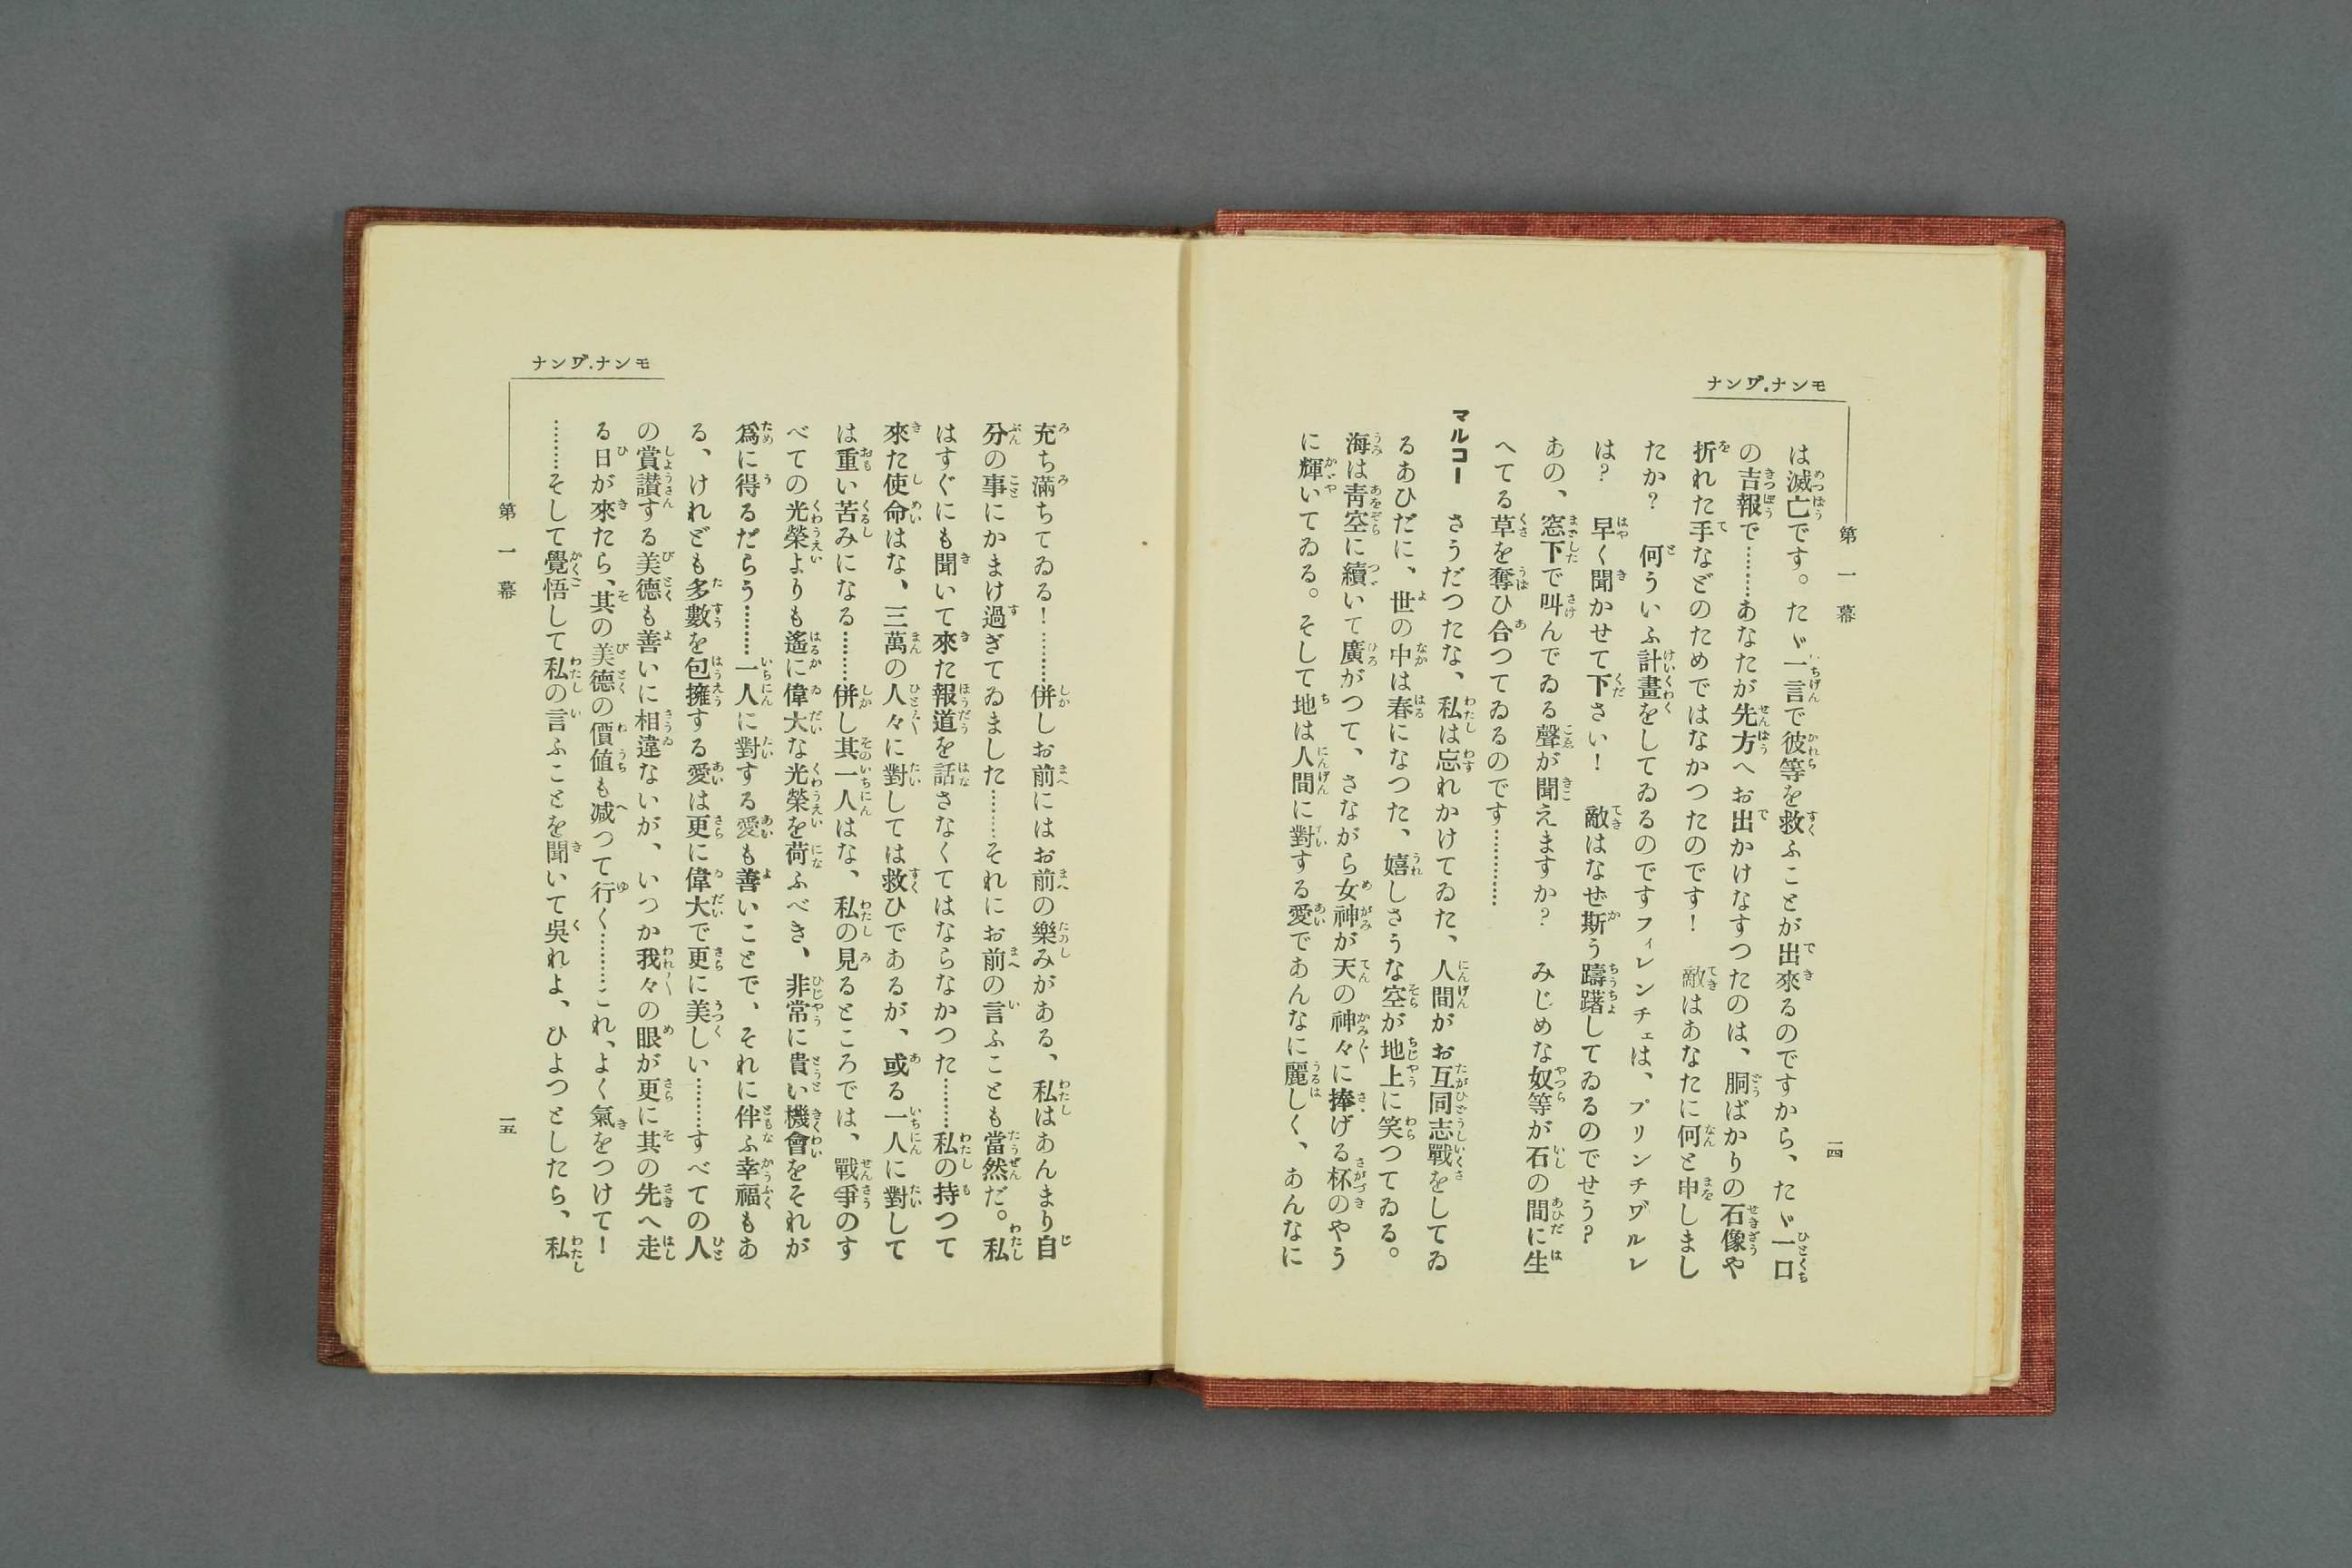 モンナ・ヴンナ
第一幕
一四
は滅亡です。たゞ一言で彼等を救ふことが出來るのですから、たゞ一口
の吉報で………あなたが先方へお出かけなすつたのは、胴ばかりの石像や
折れた手などのためではなかつたのです！　敵はあなたに何と申しまし
たか？　何ういふ計畫をしてゐるのですフィレンチェは、プリンチヴルレ
は？　早く聞かせて下さい！　敵はなぜ斯う躊躇してゐるのでせう？
あの、窓下で叫んでゐる聲が聞えますか？　みじめな奴等が石の間に生
へてる草を奪ひ合つてゐるのです…………
マルコー　さうだつたな、私は忘れかけてゐた、人間がお互同志戰をしてゐ
るあひだに、世の中は春になつた、嬉しさうな空が地上に笑つてゐる。
海は靑空に續いて廣がつて、さながら女神が天の神々に捧げる杯のやう
に輝いてゐる。そして地は人間に對する愛であんなに麗しく、あんなに
モンナ・ヴンナ
第一幕
一五
充ち滿ちてゐる！………併しお前にはお前の樂みがある、私はあんまり自
分の事にかまけ過ぎてゐました………それにお前の言ふことも當然だ。私
はすぐにも聞いて來た報道を話さなくてはならなかつた………私の持つて
來た使命はな、三萬の人々に對しては救ひであるが、或る一人に對して
は重い苦みになる………併し其一人はな、私の見るところでは、戰爭のす
べての光榮よりも遙に偉大な光榮を荷ふべき、非常に貴い機會をそれが
爲に得るだらう………一人に對する愛も善いことで、それに伴ふ幸福もあ
る、けれども多數を包擁する愛は更に偉大で更に美しい………すべての人
の賞讃する美德も善いに相違ないが、いつか我々の眼が更に其の先へ走
る日が來たら、其の美德の價値も減つて行く………これ、よく氣をつけて！
………そして覺悟して私の言ふことを聞いて吳れよ、ひよつとしたら、私